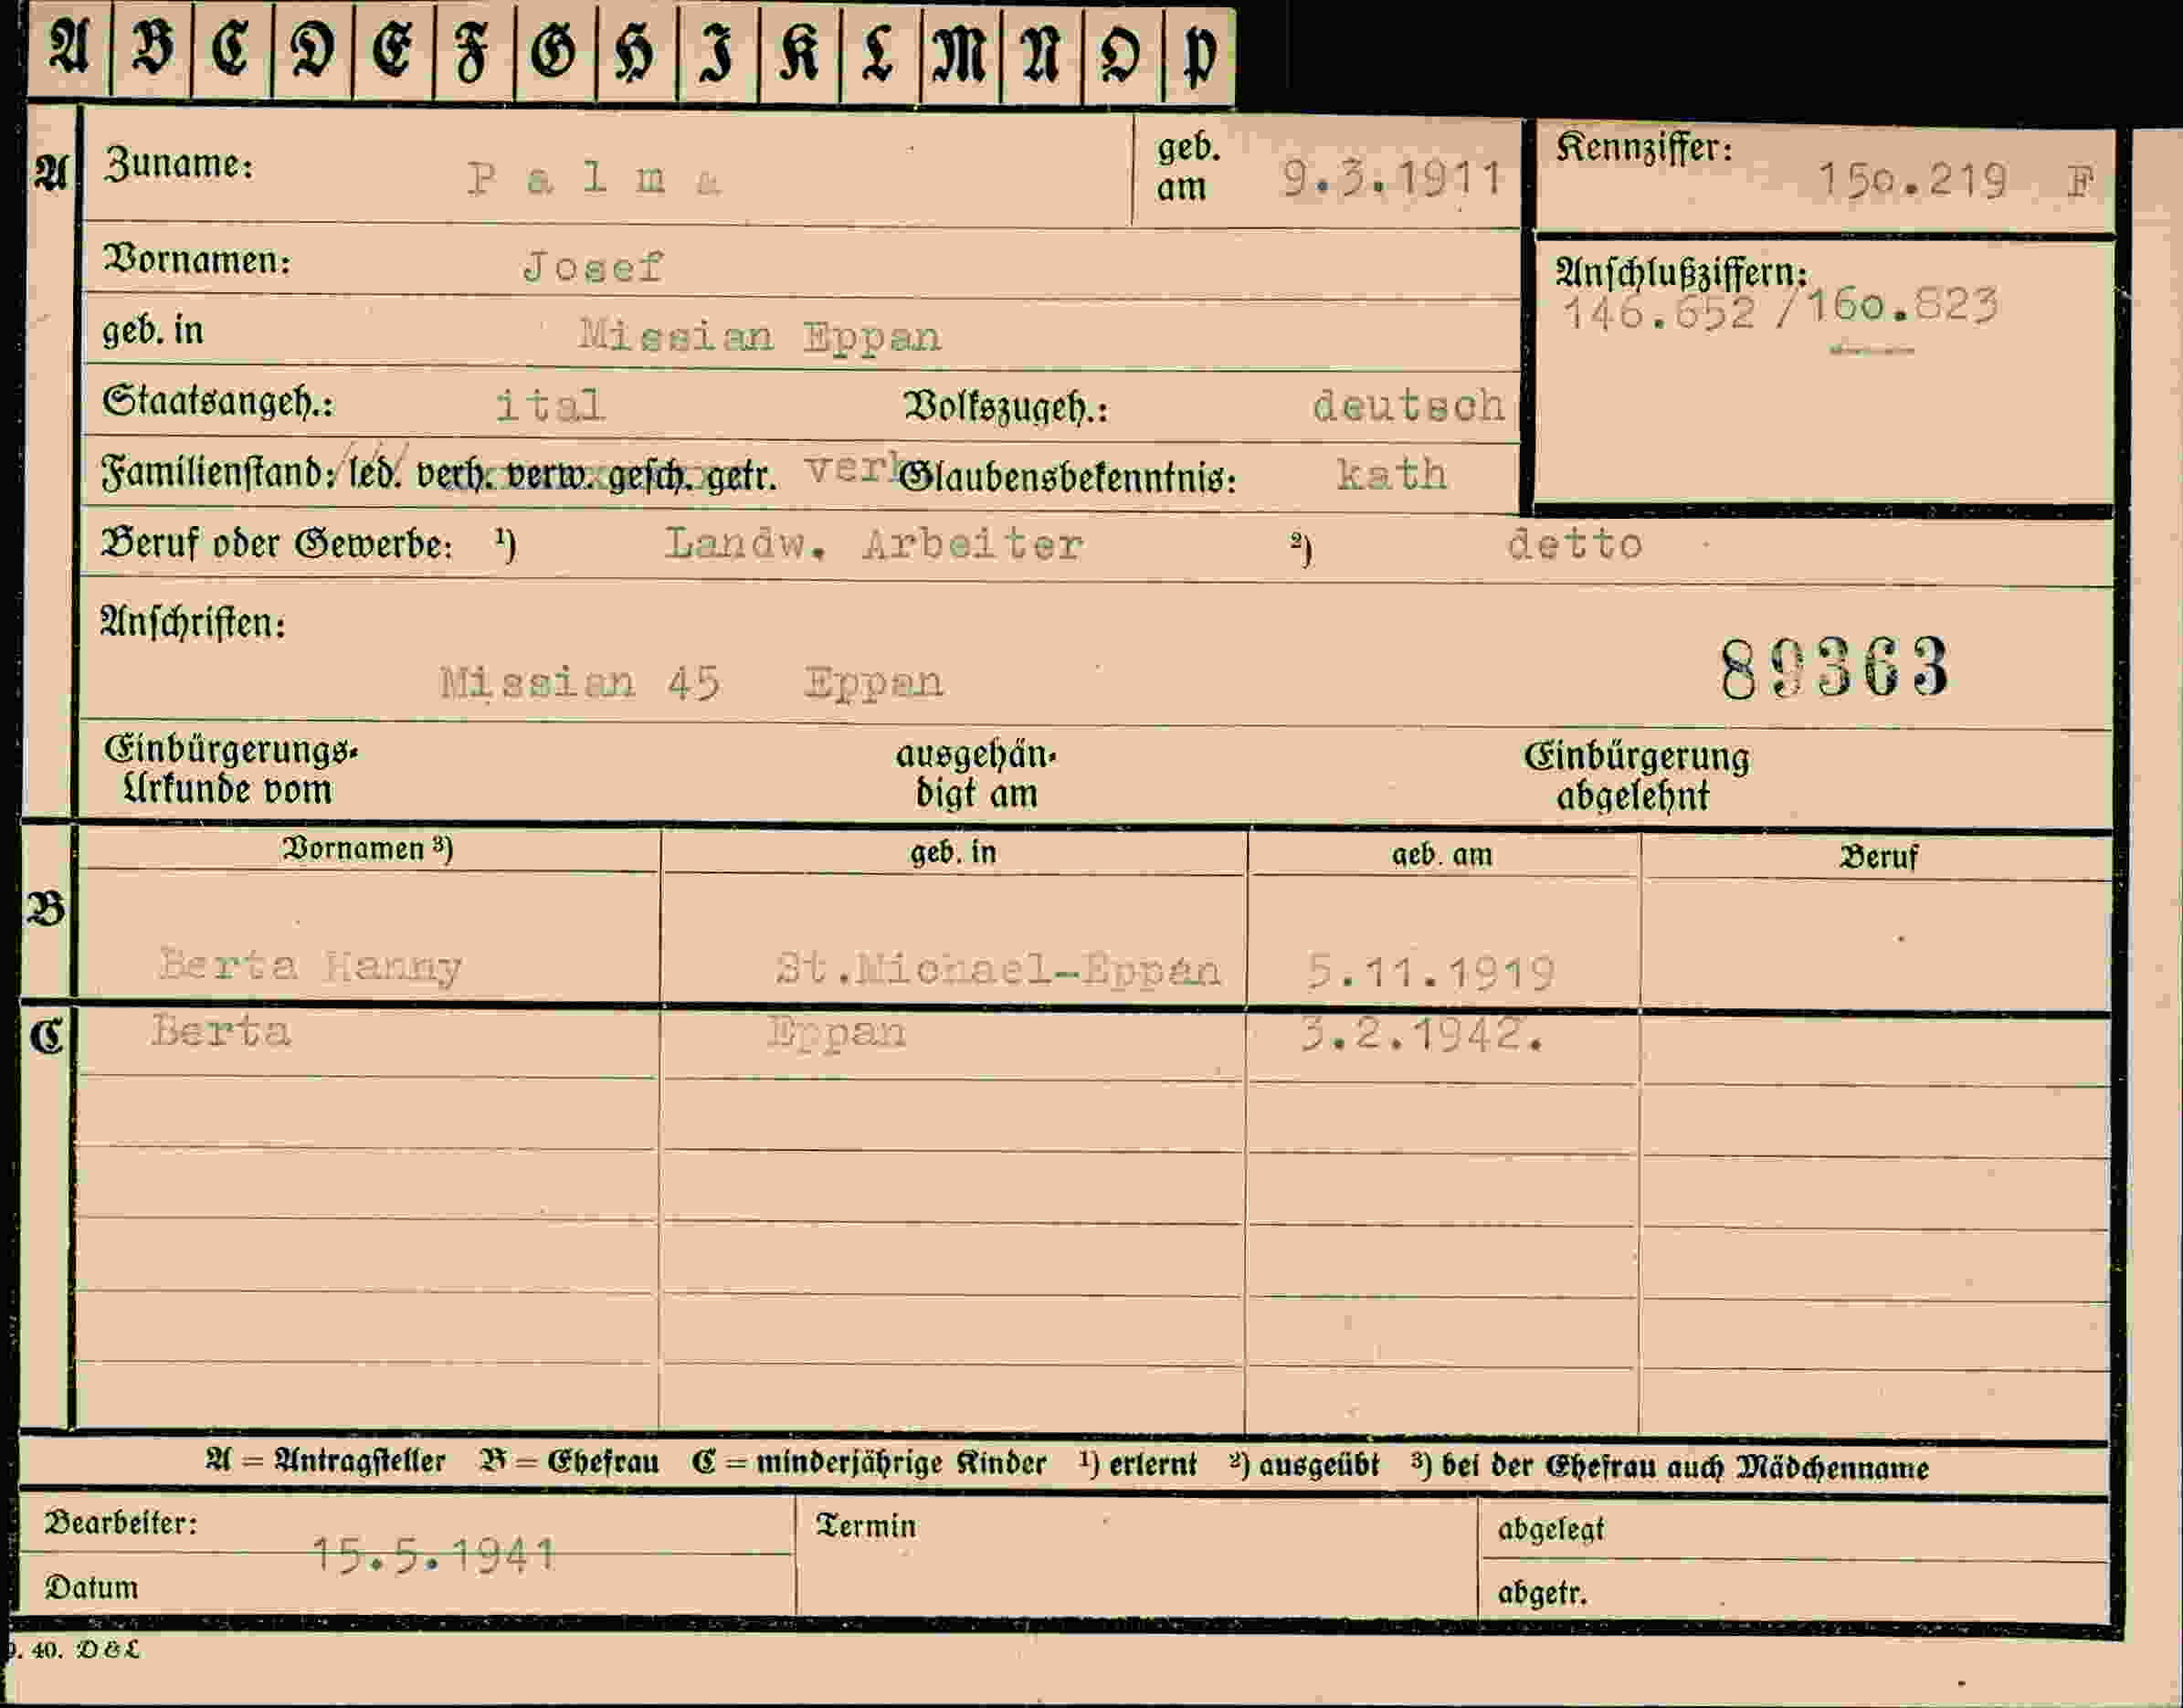 A B C D E F G H I K L M N O P
A Zuname: Palma geb. am 9.3.1911 Kennziffer: 150.219 F
Vornamen: Josef
Anschlußziffern: 146.652 / 160.823
geb. in Missian Eppan
Staatsangeh.: ital Volkszugeh.: deutsch
Familienstand: led. verh. verw. gesch. getr. verh Glaubensbekenntnis: kath
Beruf oder Gewerbe: 1) Landw. Arbeiter 2) detto
Anschriften:
Missian 45 Eppan 89363
Einbürgerungs-Urkunde vom ausgehändigt am Einbürgerung abgelehnt
Vornamen 3) geb. in geb. am Beruf
B
Berta Hanny St.Michael-Eppan 5.11.1919
C Berta Eppan 3.2.1942.
A = Antragsteller B = Ehefrau C = minderjährige Kinder 1) erlernt 2) ausgeübt 3) bei der Ehefrau auch Mädchenname
Bearbeiter: Termin abgelegt
15.5.1941
Datum abgetr.
40. D & L